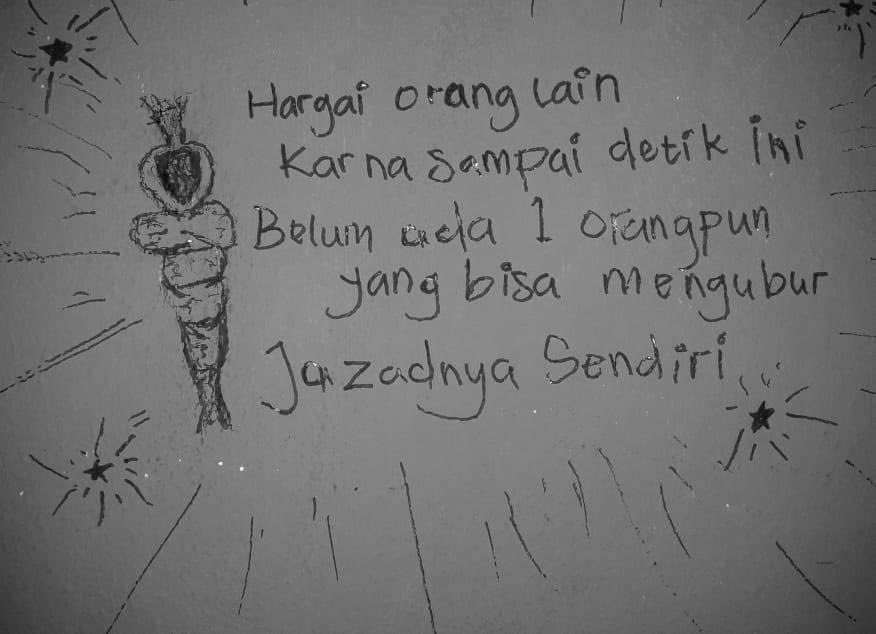 Hargai orang lain
Karna sampai detik ini
Belum ada 1 orangpun
yang bisa mengubur
Jazadnya Sendiri